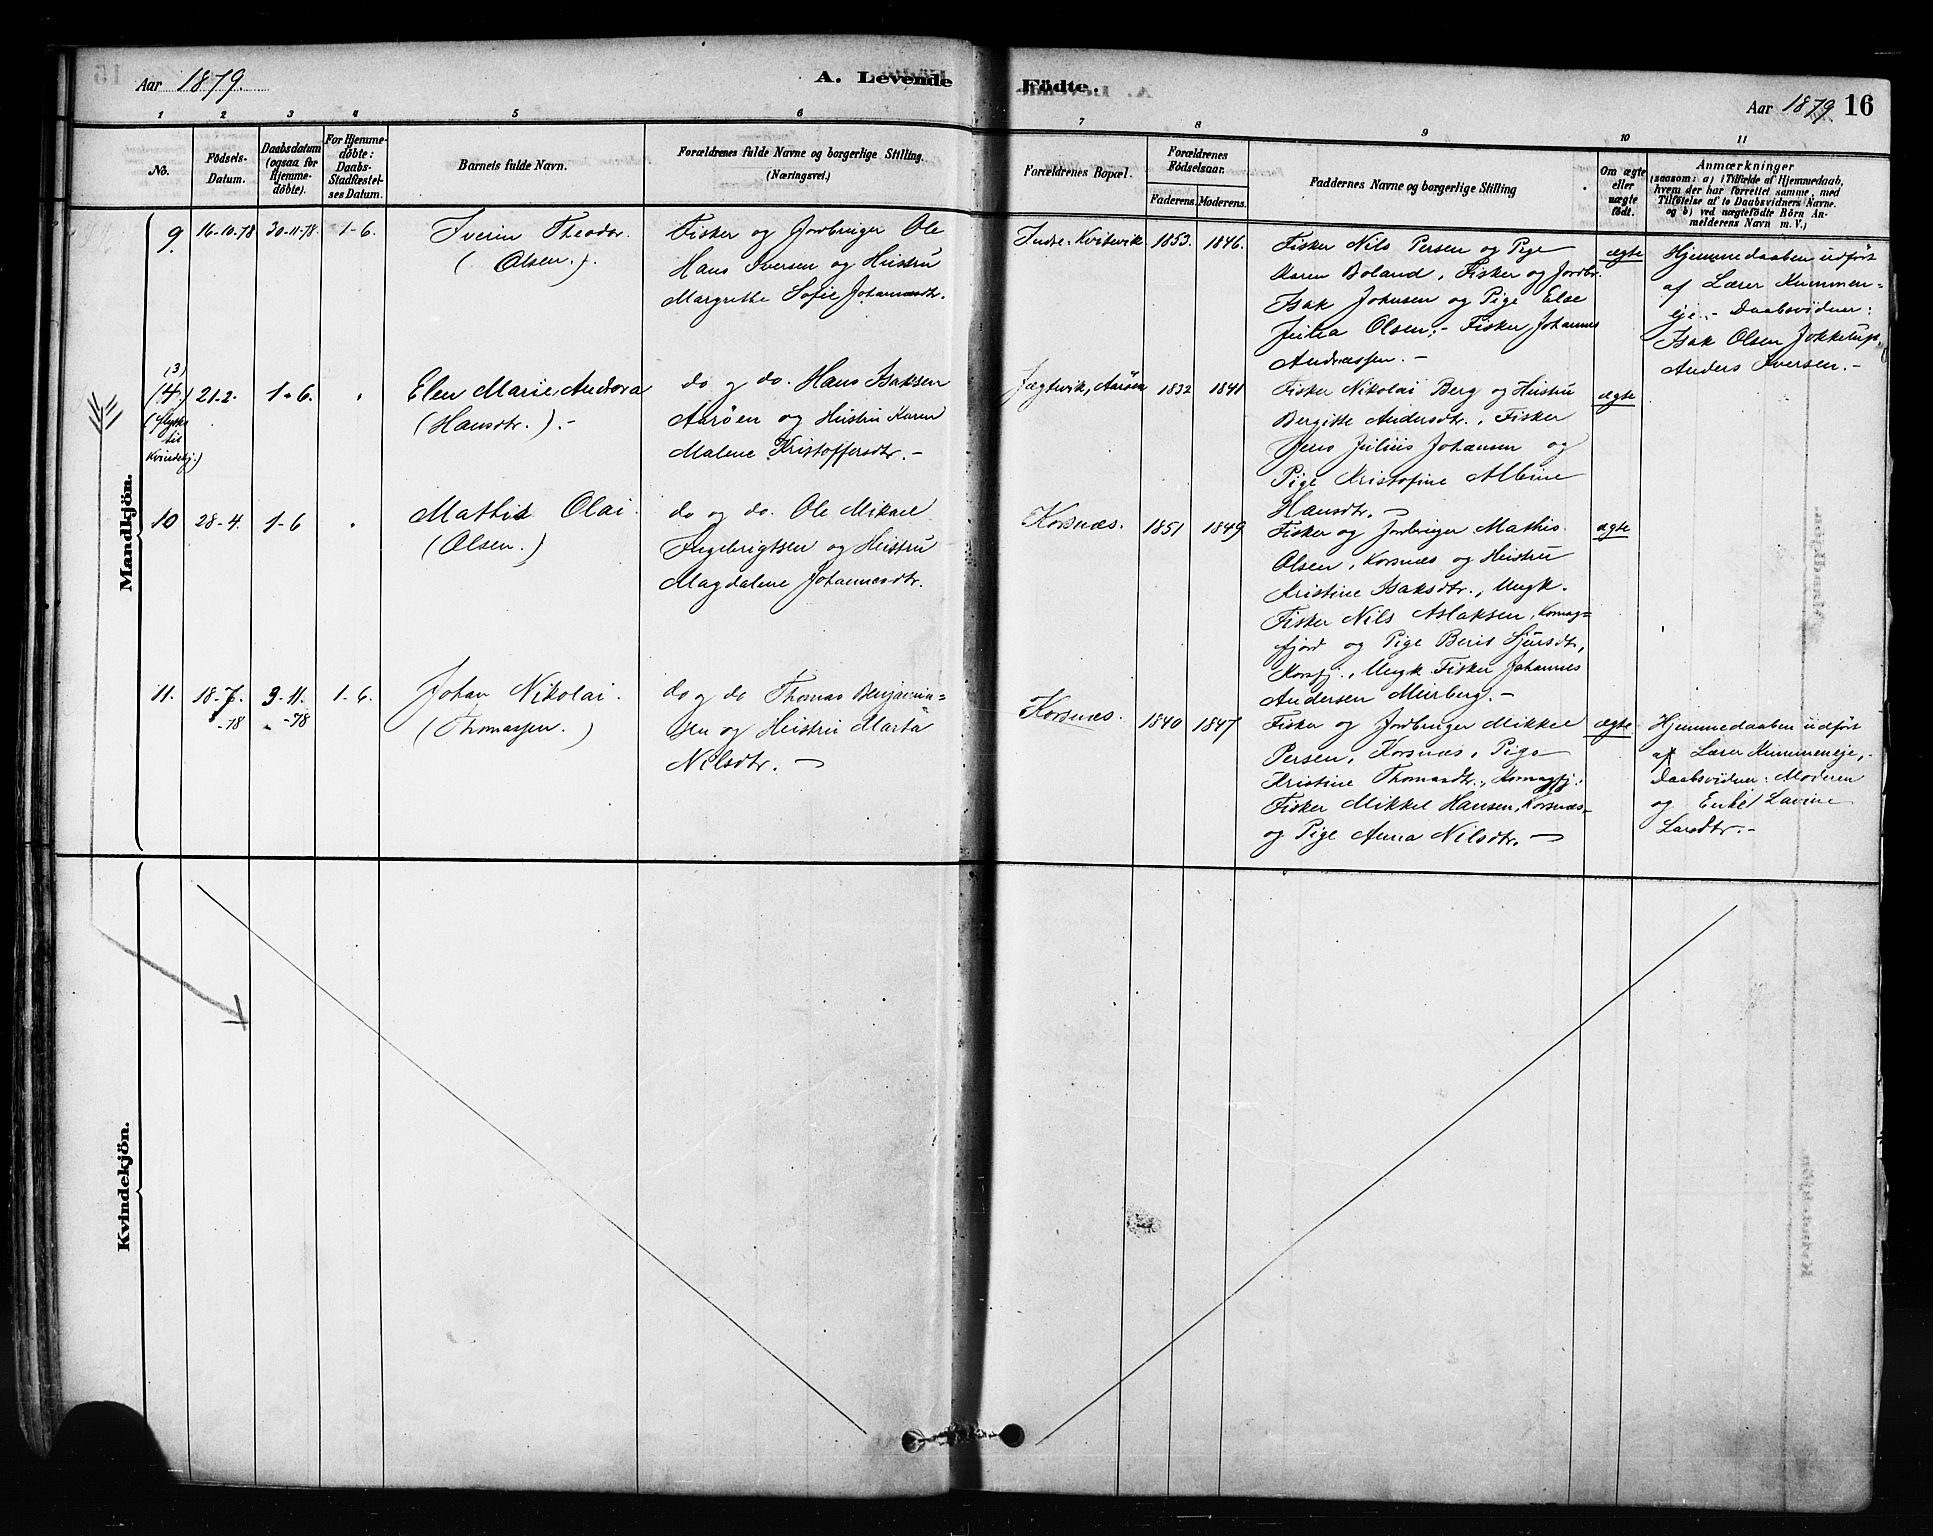 Aar 1879.
A. Levende
Födte.
Aar 1879
16
1
2
3
4
5
6
7
8
9
10
11
No.
Födsels-
Datum.
Daabsdatum
(ogsaa for
Hjemme-
döbte).
For Hjemme-
döbte:
Daabs-
Stadfæstel-
ses Datum.
Barnets fulde Navn.
Forældrenes fulde Navne og borgerlige Stilling.
(Næringsvei.)
Forældrenes Bopæl.
Forældrenes
Födselsaar.
Faderens.
Moderens.
Faddernes Navne og borgerlige Stilling
Om ægte
eller
uægte
født.
Anmærkninger
(saasom: a) i Tilfælde af Hjemmedaab,
hvem der har forrettet samme, med
Tilföielse af to Daabsvidners Navne.
og b) ved uægtefödte Börn An-
melderens Navn m. V.)
Mandkjön.
9.
16-10-78
30-11-78
1-6.
Iverin Theodor.
(Olsen.).
Fisker og Jordbruger Ole
Hans Iversen og Hustru
Margrethe Sofie Johannesdtr.
Indre-Kvitevik
1853.
1846.
Fisker Nils Persen og Pige
Karen Boland, Fisker og Jordbr.
Isak Johnsen og Pige Else
Julia Olsen; - Fisker Johannes
Andreassen. -
ægte
Hjemmedaaben udført
af Lærer Kummen=
eje. - Daabsvidner:
Isak Olsen
Anders Iversen. -
(3)
(4.)
(flyttes
til
Kvindekj.)
21-2.
1-6.
"
Elen Marie Andora
(Hansdtr.). -
do og do. Hans Isaksen
Aarøen og Hustru Karen
Malene Kristoffersdtr. -
Jægtevik, Aarøen
1832
1841
Fisker Nikolai Berg og Hustru
Bergitte Andersdtr., Fisker
Jens Julius Johansen og
Pige Kristofine Albine
Hansdtr. -
ægte
10
28-4.
1-6
"
Mathis Olai.
(Olsen.)
do og do. Ole Mikkel
Ingebrigtsen og Hustru
Magdalene Johannesdtr.
Korsnæs.
1851
1849
Fisker og Jordbruger Mathis
Olsen, Korsnæs og Hustru
Kristine Isaksdtr., Ungk.
Fisker Nils Aslaksen, Komag-
fjord og Pige Berit Sjursdtr,
Korsfj., Ungk Fisker Johannes
Andersen Mierberg. -
ægte
11.
18-7.
-78
9-11.
-78
1-6.
Johan Nikolai.
(Thomassen.)
do og do Thomas Benjamin=
sen og Hustru Marta
Nilsdtr. -
Korsnæs.
1840
1847
Fisker og Jordbruger Mikkel
Persen, Korsnæs, Pige
Kristine Thomasdtr., Komagfj;
Fisker Mikkel Hansen, Korsnæs-
og Pige Anna Nilsdtr. -
ægte
Hjemmedaaben udført
af Lærer Kummeneje, -
Daabsvidner: Moderen
og Enke Lavine
Larsdtr. -
Kvindekjön.